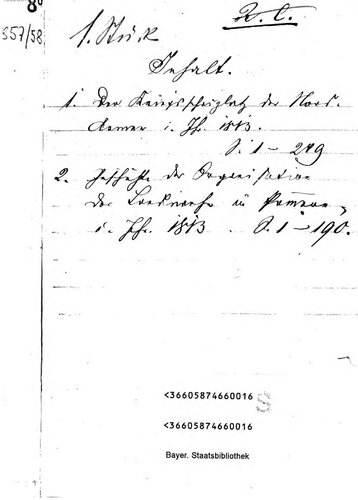 8°
357/58
R. C.
1. Stück
Inhalt.
1. Der Kriegsschauplatz der Nord-
Armee i. J. 1813.
S. 1 – 249
2. Geschichte der Organisation
der Landwehr in Pommern
i. J. 1813. S. 1 – 190.
<36605874660016
<36605874660016
Bayer. Staatsbibliothek